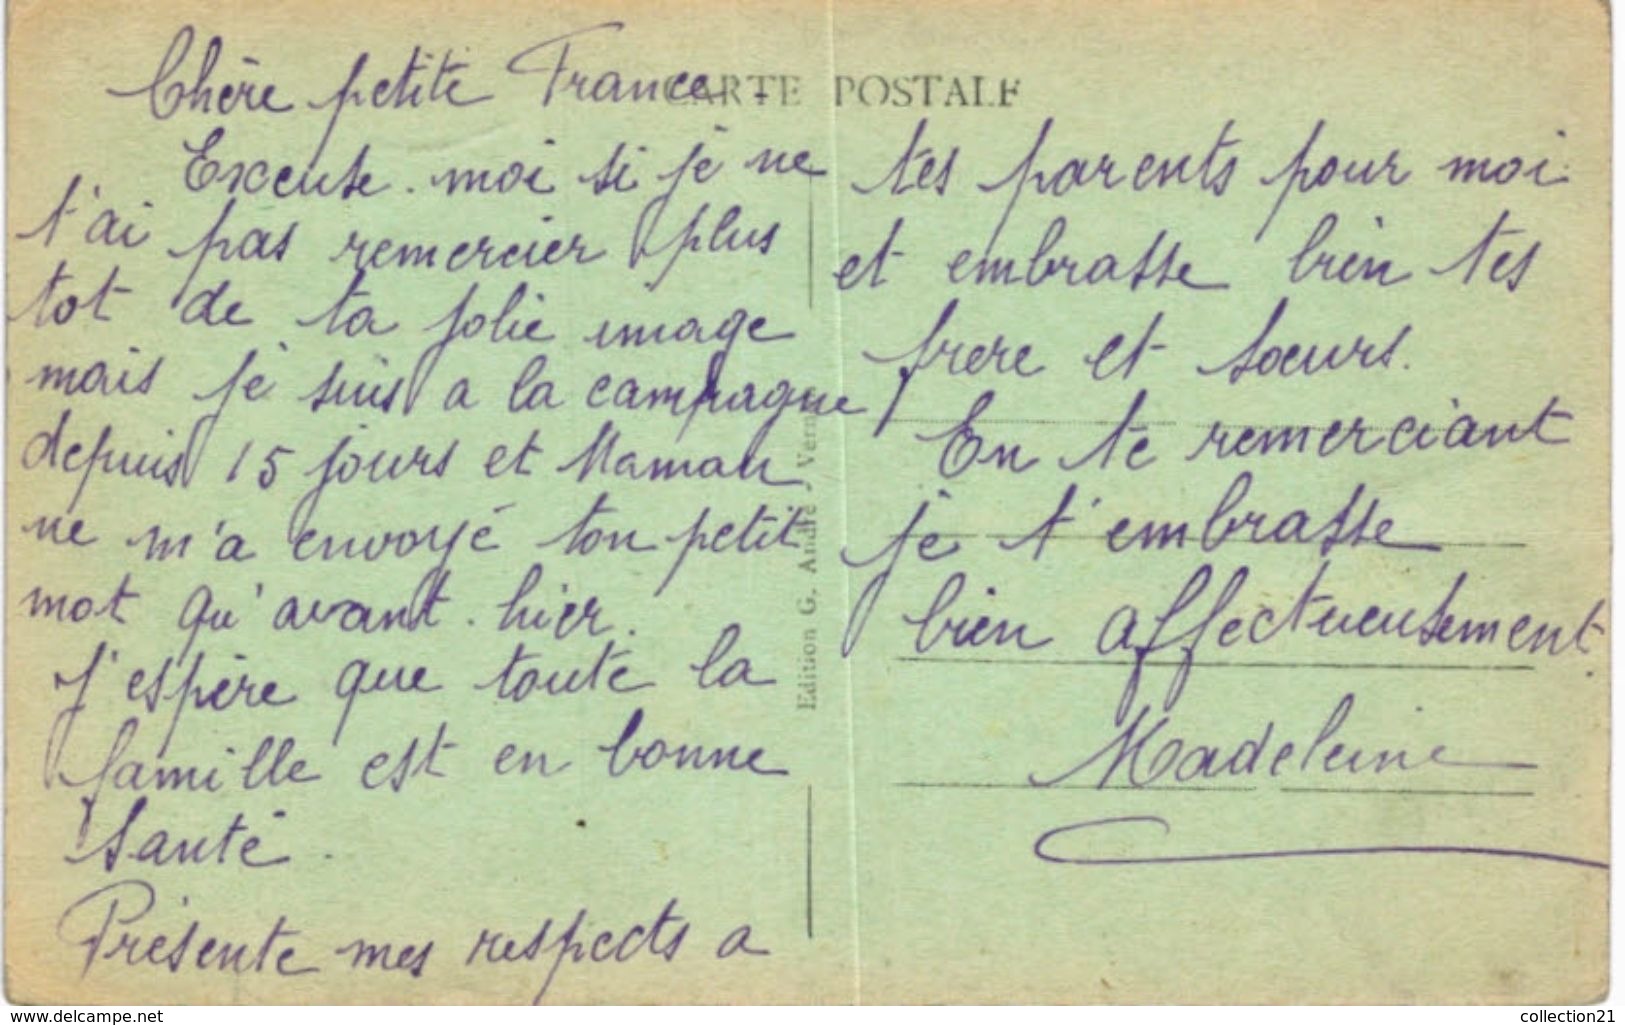 CARTE POSTALE
Chère petite France.
Excuse-moi si je ne
t'ai pas remercier plus
tot de ta jolie image
mais je suis a la campagne
depuis 15 jours et Maman
ne m'a envoyé ton petit
mot qu'avant-hier.
J'espère que toute la
famille est en bonne
santé.
Présente mes respects a
tes parents pour moi
et embrasse bien tes
frere et sœurs.
En te remerciant
je t'embrasse
bien affectueusement.
Madeleine
Edition G. André
www.delcampe.net
collection21